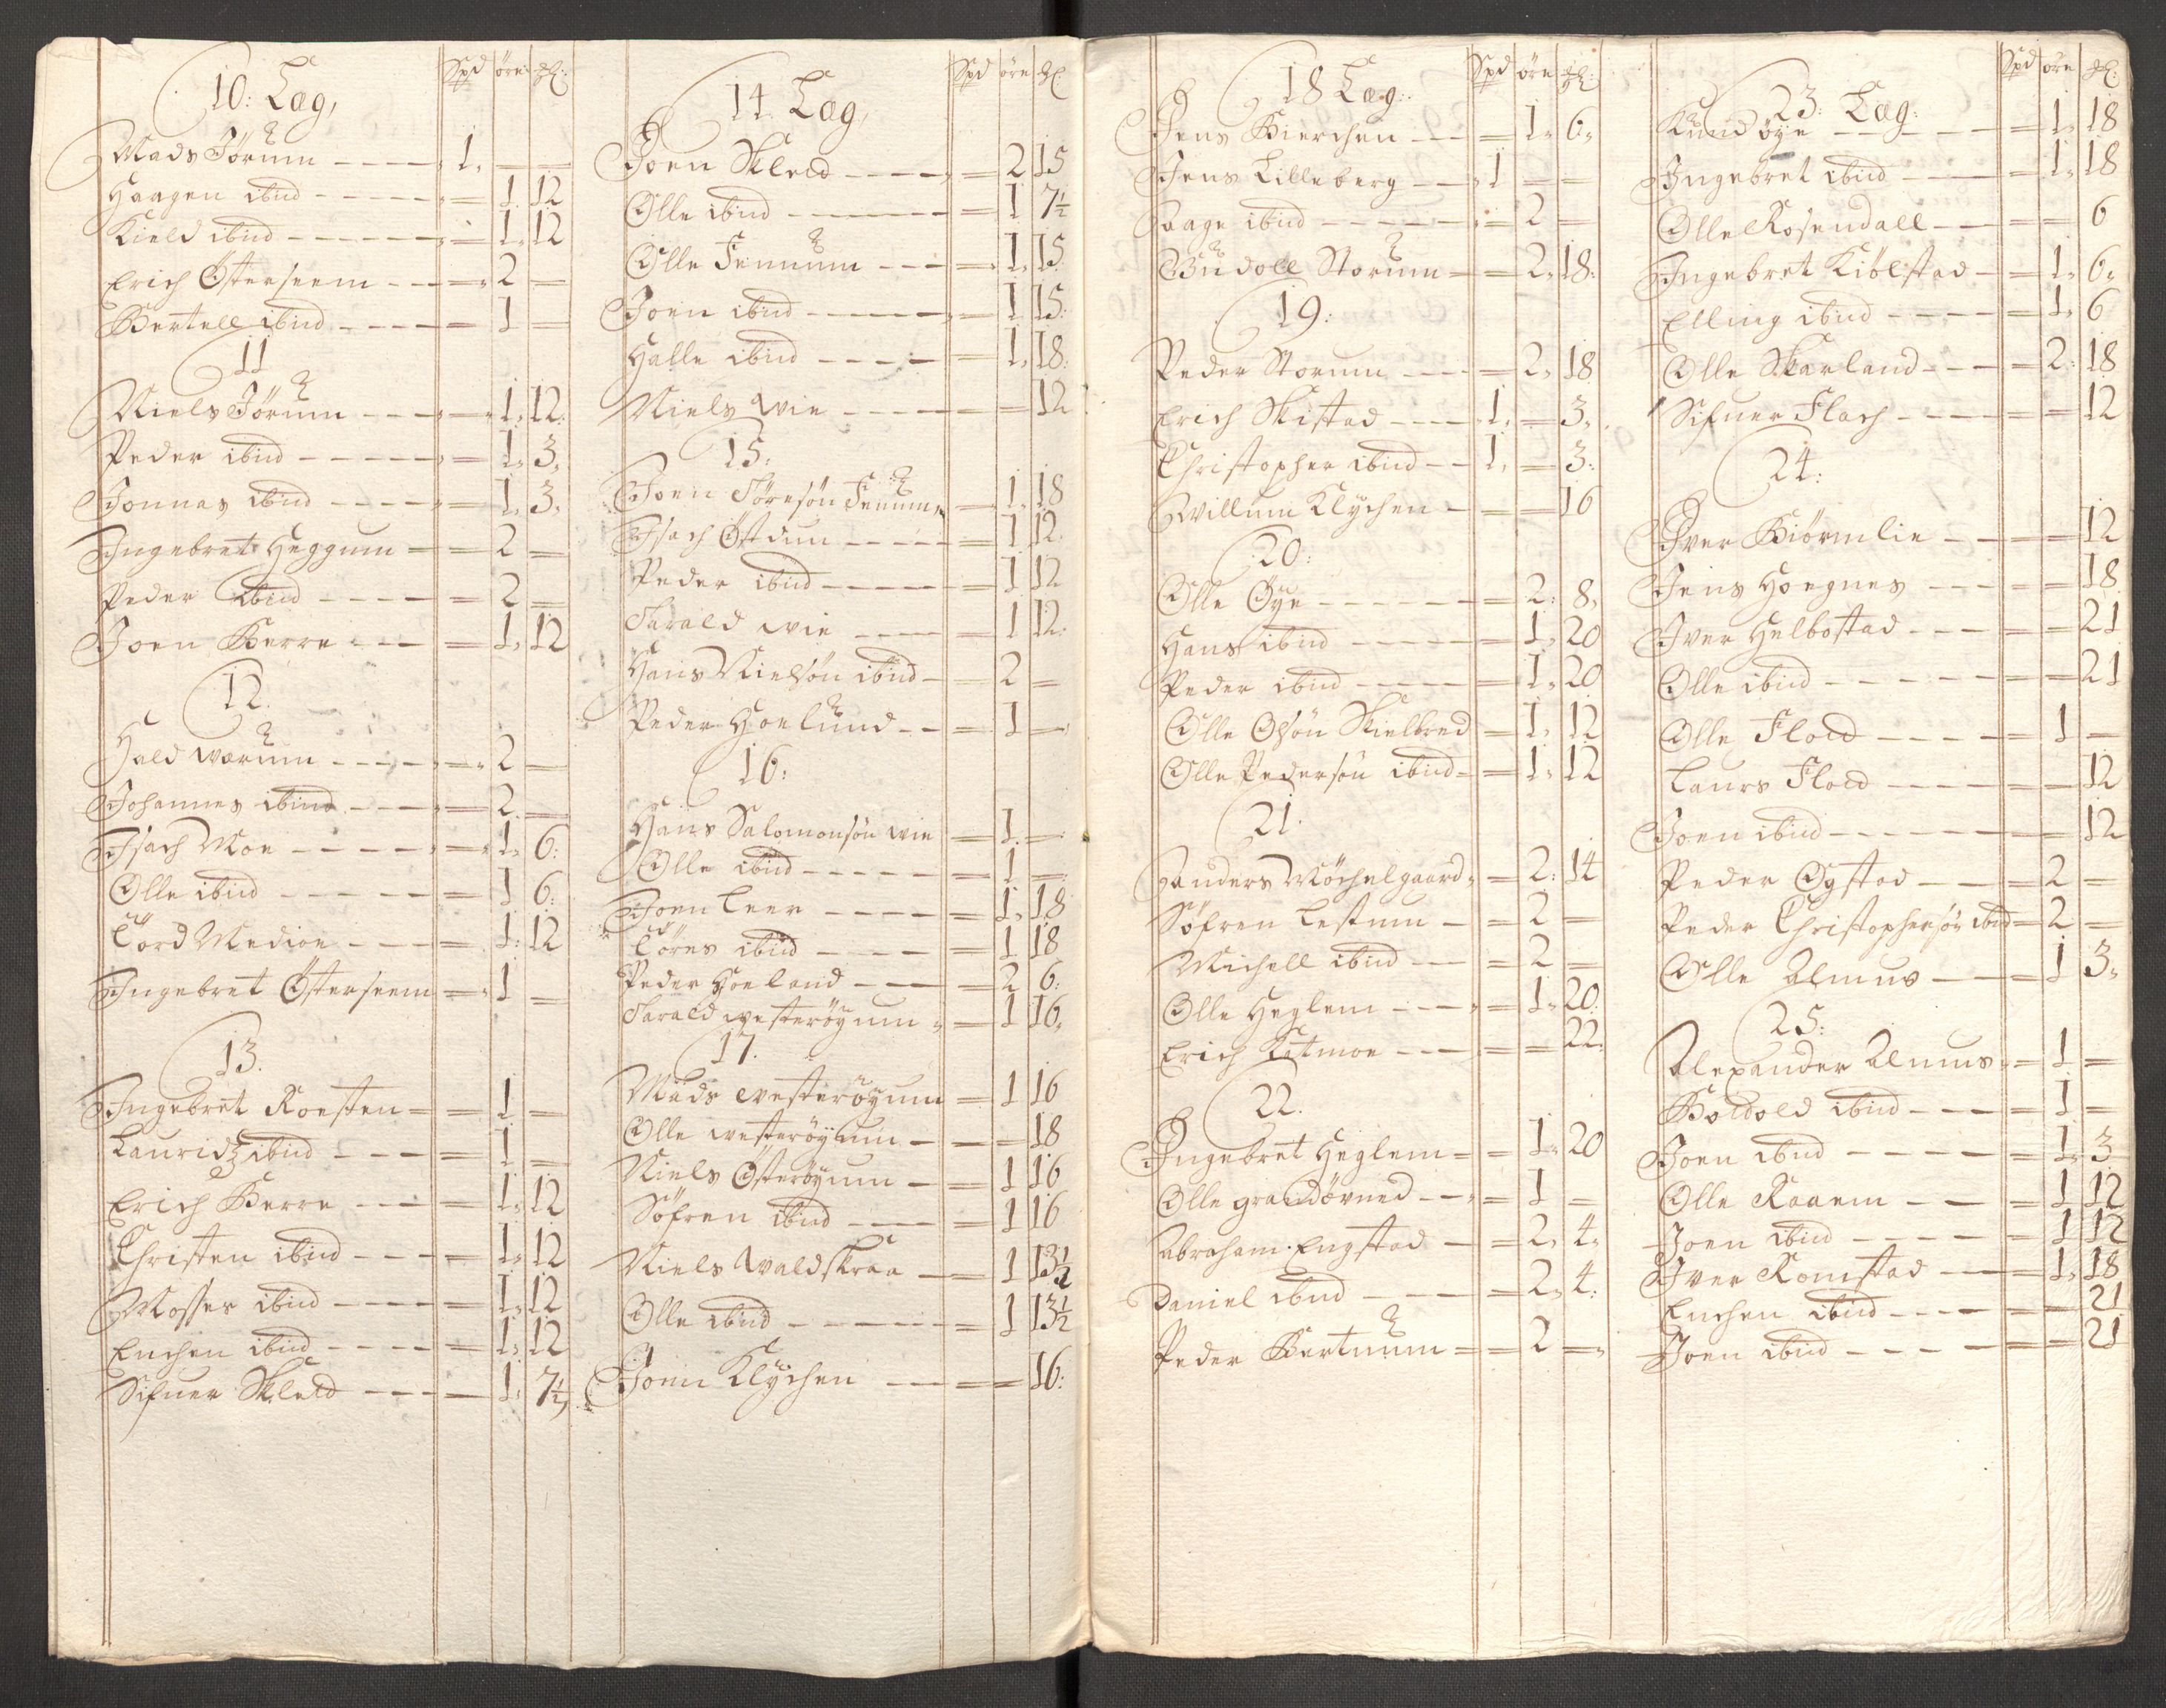 Spd öre ₰:
10: Læg,
Mads Jørum - - - - 1. = =
Haagen ibid - - - - = 1. 12
Kield ibid - - - - = 1. 12
Erich Østerseem - - - = 2 =
Bertell ibid - - - - = 1 =
11
Niels Jørum - - - = 1. 12.
Peder ibid - - - - = 1. 3.
Jonnas ibid - - - - = 1. 3.
Ingebret Heggum = = 2 =
Peder ibid - - - - = 2 =
Joen Berre - - - = 1. 12
12.
Hald Wærum - - - - = 2 =
Johannes ibind - - - = 2. =
Isach Moe - - - - = 1. 6:
Olle ibid - - - - = 1 6:
Tord Medion - - - = 1: 12
Ingebret Østerseem = 1 =
13.
Ingebret Roesten = = 1 =
Lauridz ibid - - - = 1 =
Erich Berre - - - = 1. 12
Christen ibid - - - = 1. 12
Mosses ibid - - - = 1. 12
Enchen ibid - - - - = 1. 12
Sifuer Skleld - - - 1. 7½
Spd öre ₰
14. Læg,
Joen Skleld - - - - = 2 15
Olle ibid - - - - = 1 7½
Olle Fennum - - - = 1. 15
Joen ibid - - - - = 1 15:
Halle ibid - - - - = 1. 18:
Niels Wie - - - - = = 12
15.
Joen Töresøn Fenum = 1. 18
Isach Østdun - - - - = 1 12.
Peder ibid - - - - = 1 12
Tarald Wie - - - - = 1 12:
Hans Nielsøn ibid - = 2 =
Peder Hoelund - - = 1 =
16:
Hans Salomonsøn Wie = 1. =
Olle ibid - - - - = 1 =
Joen Leer - - - - = 1. 18
Töres ibid - - - - = 1 18
Peder Hoeland - - - = 2 6:
Tarald Westerøyum = 1 16.
17.
Mads Westerøyum = 1 16
Olle Westerøyum - - = 18
Niels Østerøyum - = 1 16
Söfren ibid - - - = 1 16
Niels Waldskraa - = 1 13½
Olle ibid - - - - - = 1 13½
Jonn Klychen - - = = 16:
Spd öre ₰
18 Læg:
Jens Bierchen - - = 1. 6.
Jens Lilleberg - - 1 = =
Aage ibid - - - - = 2 =
Budoll Storum = = 2. 18:
19:
Peder Storum - - - = 2. 18
Erich Skistad - - - 1. = 3.
Christopher ibid - - 1. = 3:
Willum Klychen - = = 16
20:
Olle Øye - - - - - = 2: 8.
Hans ibid - - - - = 1. 20
Peder ibid - - - - = 1. 20
Olle Olsøn Skielbred = 1. 12
Olle Pedersøn ibid = = 1. 12
21.
Anders Möchelgaard = 2: 14
Söfren Lestum - = 2 =
Michell ibid - - = 2 =
Olle Heglem - - - = 1. 20:
Erich Kotmoe - - - = = 22:
22.
Ingebret Heglem = = 1. 20
Olle Grandövned - - = 1 =
Abraham Engstad - = 2. 4.
Daniel ibid - - - = 2. 4:
Peder Bertnum = = 2 =
Spd öre ₰:
23: Læg:
Knud Öye - - - - = 1. 18
Ingebret ibid - - - = 1. 18
Olle Rosendall - - = = 6
Ingebret Kiölstad - = 1. 6.
Elling ibid - - - - = 1. 6
Olle Skarland - - - = 2: 18
Sifuer Flach - - - = = 12
24:
Iver Biörnlie - - = = 12
Jens Hoegnes - - = = 18
Iver Helbostad - - - = = 21
Olle ibid - - - - - = = 21
Olle Floed - - - - = 1 =
Laurs Floed - - - - = = 12
Joen ibid - - - - - = = 12
Peder Øystad - - = 2 =
Peder Christophersøn ibid = 2 =
Olle Almus - - = 1 3.
25:
Alexander Almus = = 1 =
Boldold ibid - - - = 1 =
Joen ibid - - - - = 1. 3
Olle Raaem - - = 1 12
Joen ibid - - - - = 1 12
Iver Romstad - - = 1. 18
Enchen ibid - - - = = 21
Joen ibid - - - - = = 21